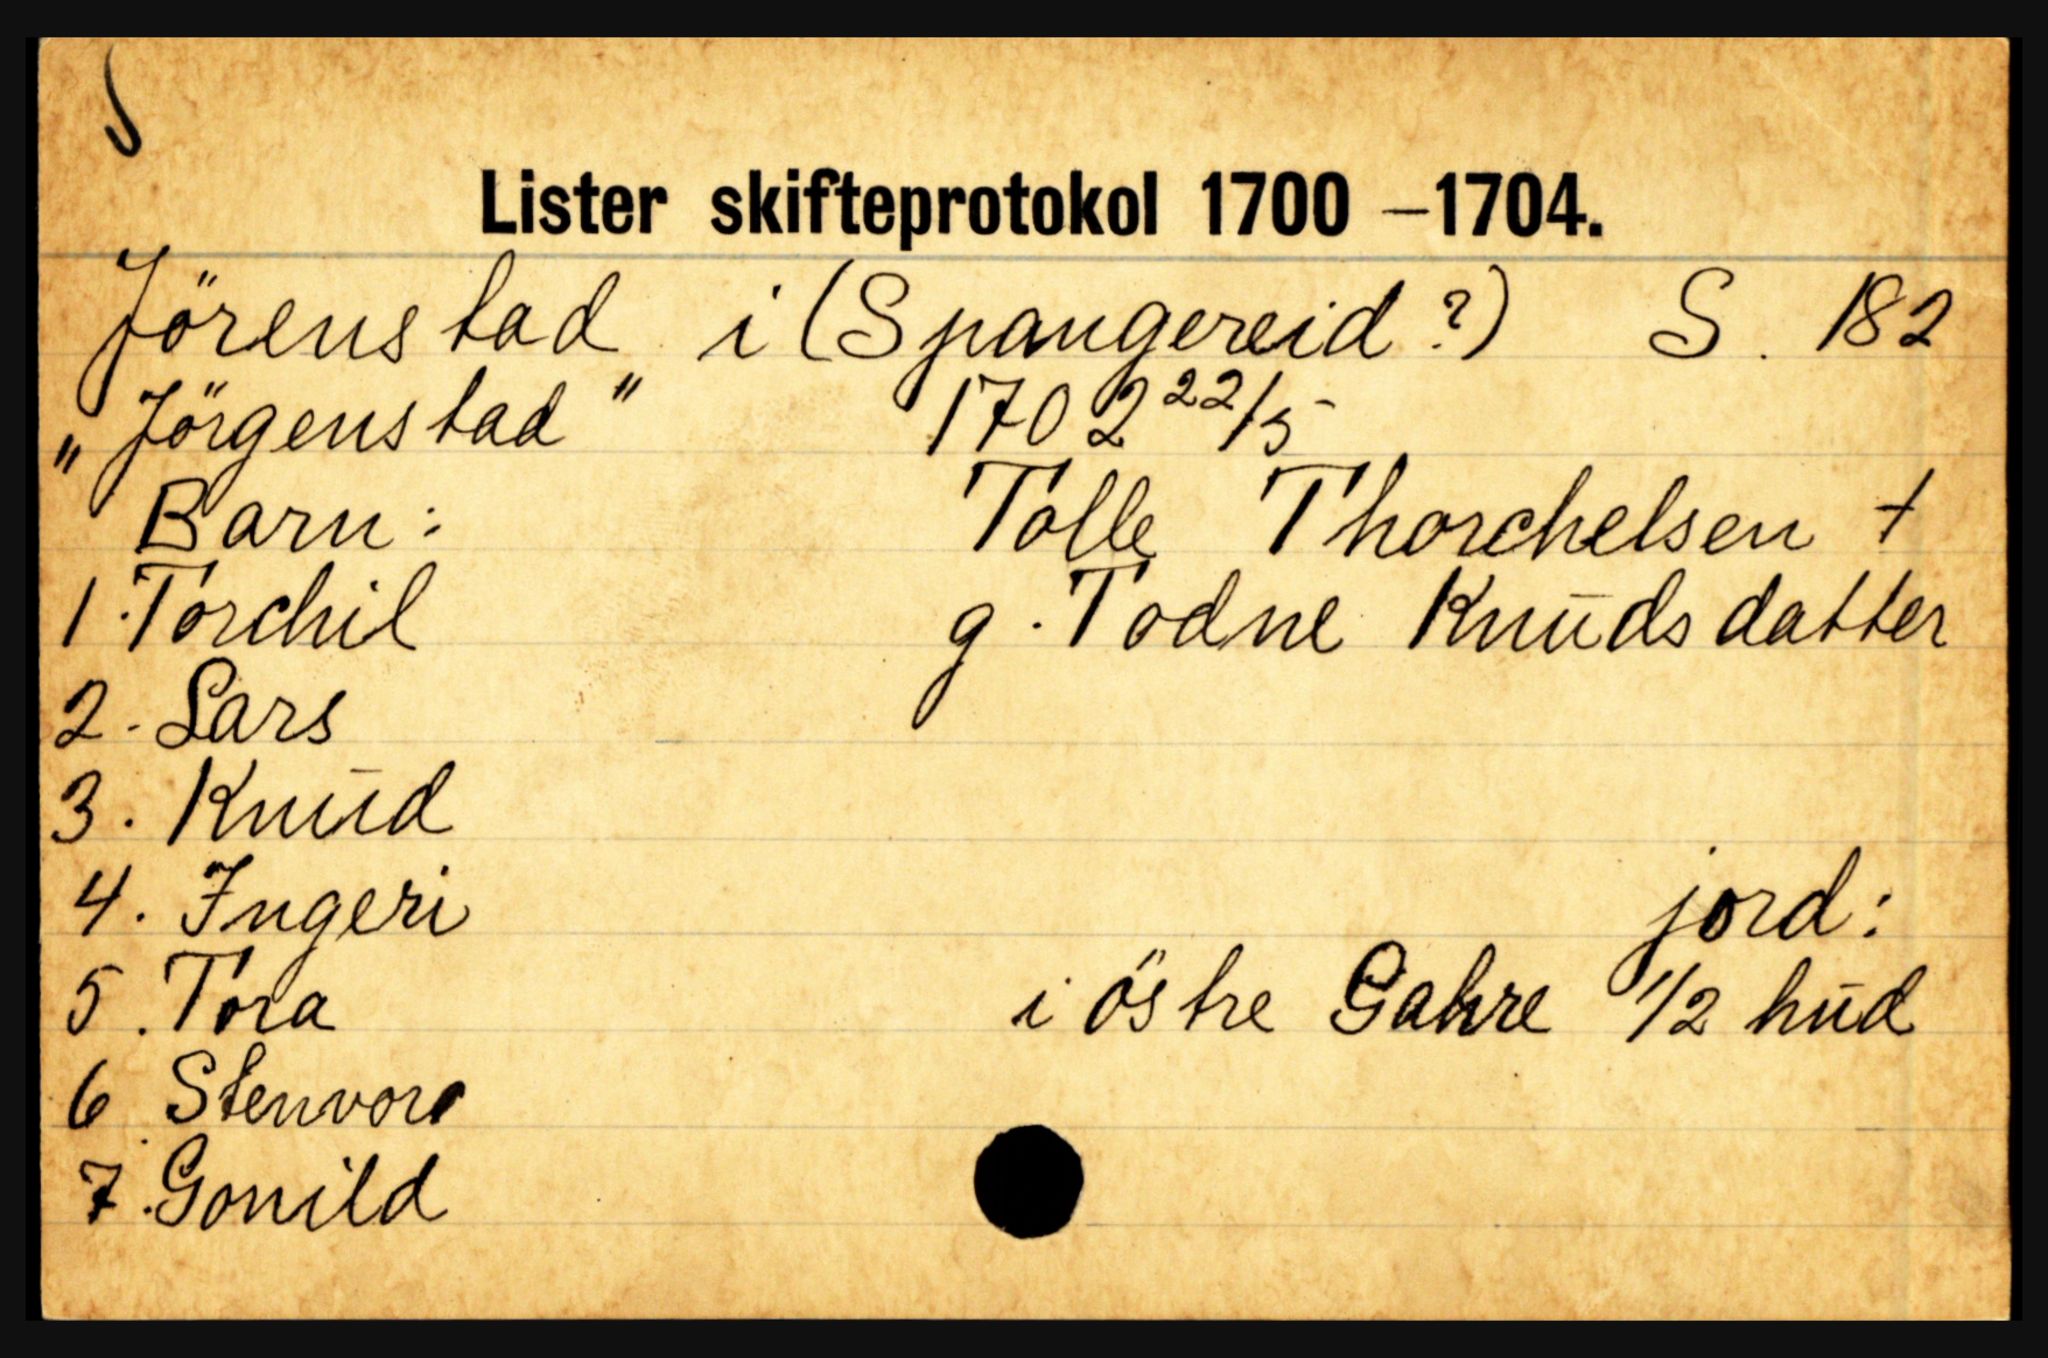 Lister skifteprotokol 1700 –1704.
Jörenstad i (Spangereid ?) S. 182
„Jörgenstad" 1702 22/5
Barn: Tolle Thorchelsen +
1. Torchil g. Todne Knudsdatter
2. Lars
3. Knud
4. Ingeri jord:
5. Tora i östre Gahre 1/2 hud
6. Stenvor
7. Gonild